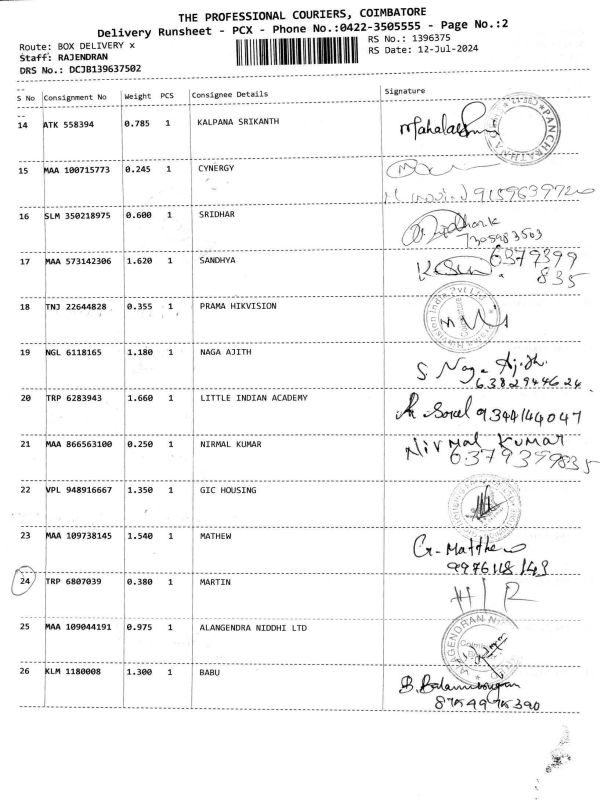 THE PROFESSIONAL COURIERS, COIMBATORE
Delivery Runsheet - PCX - Phone No.:0422-3505555 - Page No.:2
Route: BOX DELIVERY x
RS No.: 1396375
Staff: RAJENDRAN
RS Date: 12-Jul-2024
DRS No.: DCJB139637502
S No Consignment No Weight PCS Consignee Details Signature
14 ATK 558394 0.785 1 KALPANA SRIKANTH
15 MAA 100715773 0.245 1 CYNERGY
9159639720
16 SLM 350218975 0.600 1 SRIDHAR
7305983503
17 MAA 573142306 1.620 1 SANDHYA
6379399
835
18 TNJ 22644828 0.355 1 PRAMA HIKVISION
19 NGL 6118165 1.180 1 NAGA AJITH
S. Naga Ajith
6382944624
20 TRP 6283943 1.660 1 LITTLE INDIAN ACADEMY
9344144047
21 MAA 866563100 0.250 1 NIRMAL KUMAR
Nirmal Kumar
6379399835
22 VPL 948916667 1.350 1 GIC HOUSING
23 MAA 109738145 1.540 1 MATHEW
G-Matthew
9976118143
24 TRP 6807039 0.380 1 MARTIN
25 MAA 109044191 0.975 1 ALANGENDRA NIDDHI LTD
26 KLM 1180008 1.300 1 BABU
B. Balamurugan